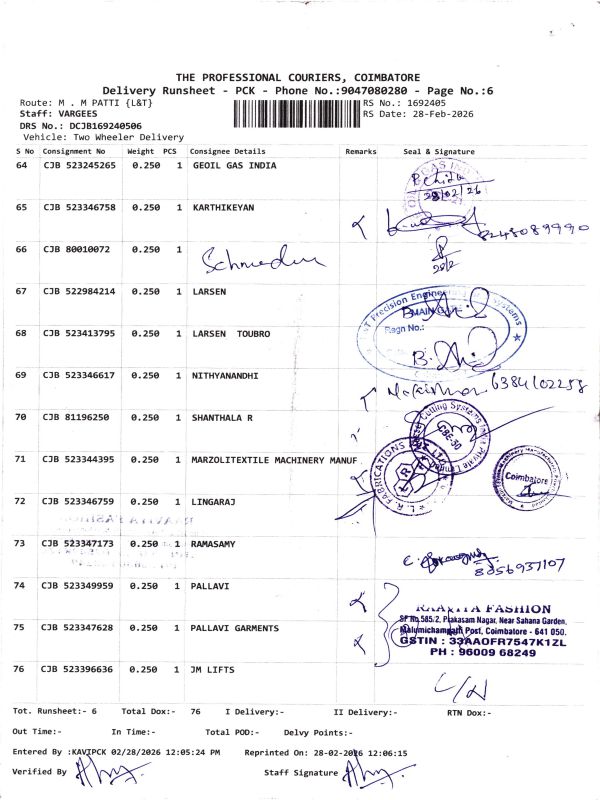 THE PROFESSIONAL COURIERS, COIMBATORE
Delivery Runsheet - PCK - Phone No.:9047080280 - Page No.:6
Route: M . M PATTI {L&T} RS No.: 1692405
Staff: VARGEES RS Date: 28-Feb-2026
DRS No.: DCJB169240506
Vehicle: Two Wheeler Delivery
S No Consignment No Weight PCS Consignee Details Remarks Seal & Signature
64 CJB 523245265 0.250 1 GEOIL GAS INDIA
28/02/26
65 CJB 523346758 0.250 1 KARTHIKEYAN
8248089990
66 CJB 80010072 0.250 1
28/2
67 CJB 522984214 0.250 1 LARSEN
L&T Precision Engineering Systems
MAIN GATE
Regn No.:
68 CJB 523413795 0.250 1 LARSEN TOUBRO
69 CJB 523346617 0.250 1 NITHYANANDHI
6384102258
70 CJB 81196250 0.250 1 SHANTHALA R
Cutting Systems India Private Limited
CBE-50
71 CJB 523344395 0.250 1 MARZOLITEXTILE MACHINERY MANUF
L. R. FABRICATIONS
Coimbatore
72 CJB 523346759 0.250 1 LINGARAJ
73 CJB 523347173 0.250 1 RAMASAMY
8056937107
74 CJB 523349959 0.250 1 PALLAVI
FASHION
SF No.585/2, Prakasam Nagar, Near Sahana Garden,
75 CJB 523347628 0.250 1 PALLAVI GARMENTS
Malumichampatti Post, Coimbatore - 641 050.
GSTIN : 33AAOFR7547K1ZL
PH : 96009 68249
76 CJB 523396636 0.250 1 JM LIFTS
Tot. Runsheet:- 6 Total Dox:- 76 I Delivery:- II Delivery:- RTN Dox:-
Out Time:- In Time:- Total POD:- Delvy Points:-
Entered By :KAVIPCK 02/28/2026 12:05:24 PM Reprinted On: 28-02-2026 12:06:15
Verified By Staff Signature